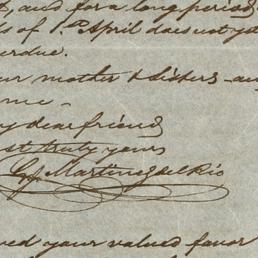 , and for a long period
s of 1st April does not y
erdue.
ur mother & sisters - a
me -
y dear friend
st truly yours
Martinez del Rio
ved your valued favor